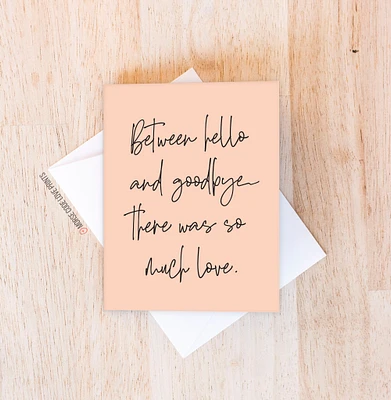 Between hello
and goodbye
there was so
much love.
@MORSE CODE LOVE PRINTS